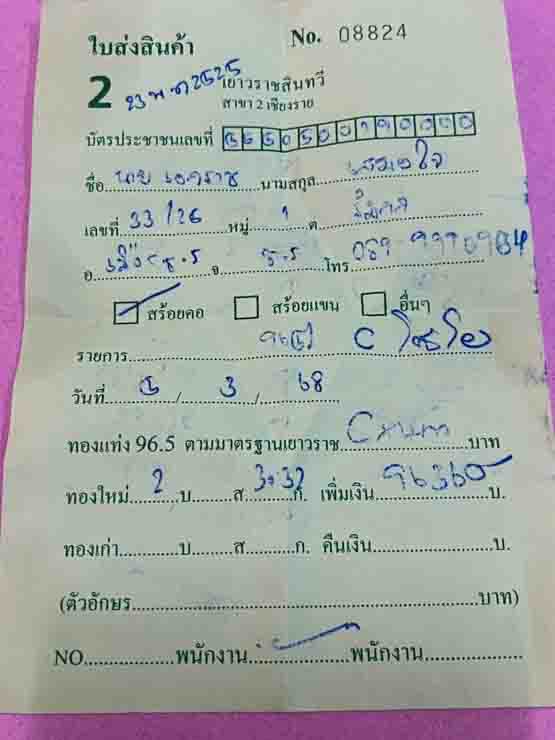 ใบส่งสินค้า No. 08824
2 เยาวราชสินทวี
23 พ.ค 2525 สาขา 2 เชียงราย
บัตรประชาชนเลขที่
ชื่อ นาย เอกราช นามสกุล
เลขที่ 33/26 หมู่ 1 ต.
อ. เมือง ช.ร จ ช.ร โทร.
สร้อยคอ สร้อยแขน อื่นๆ
รายการ C โซโล
วันที่ 5 / 3 / 68
ทองแท่ง 96.5 ตามมาตรฐานเยาวราช บาท
ทองใหม่ 2 บ. ส 30.32 ก. เพิ่มเงิน 96360 บ.
ทองเก่า บ. ส ก. คืนเงิน บ.
(ตัวอักษร บาท)
NO. พนักงาน พนักงาน